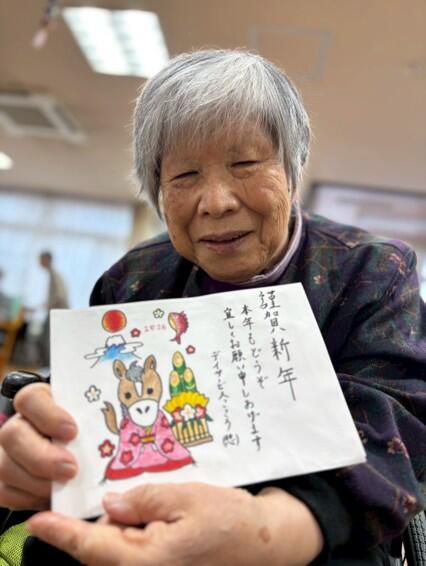 謹賀新年
本年もどうぞ
宜しくお願い申しあげます
デイサービスこころ(悠)
2026